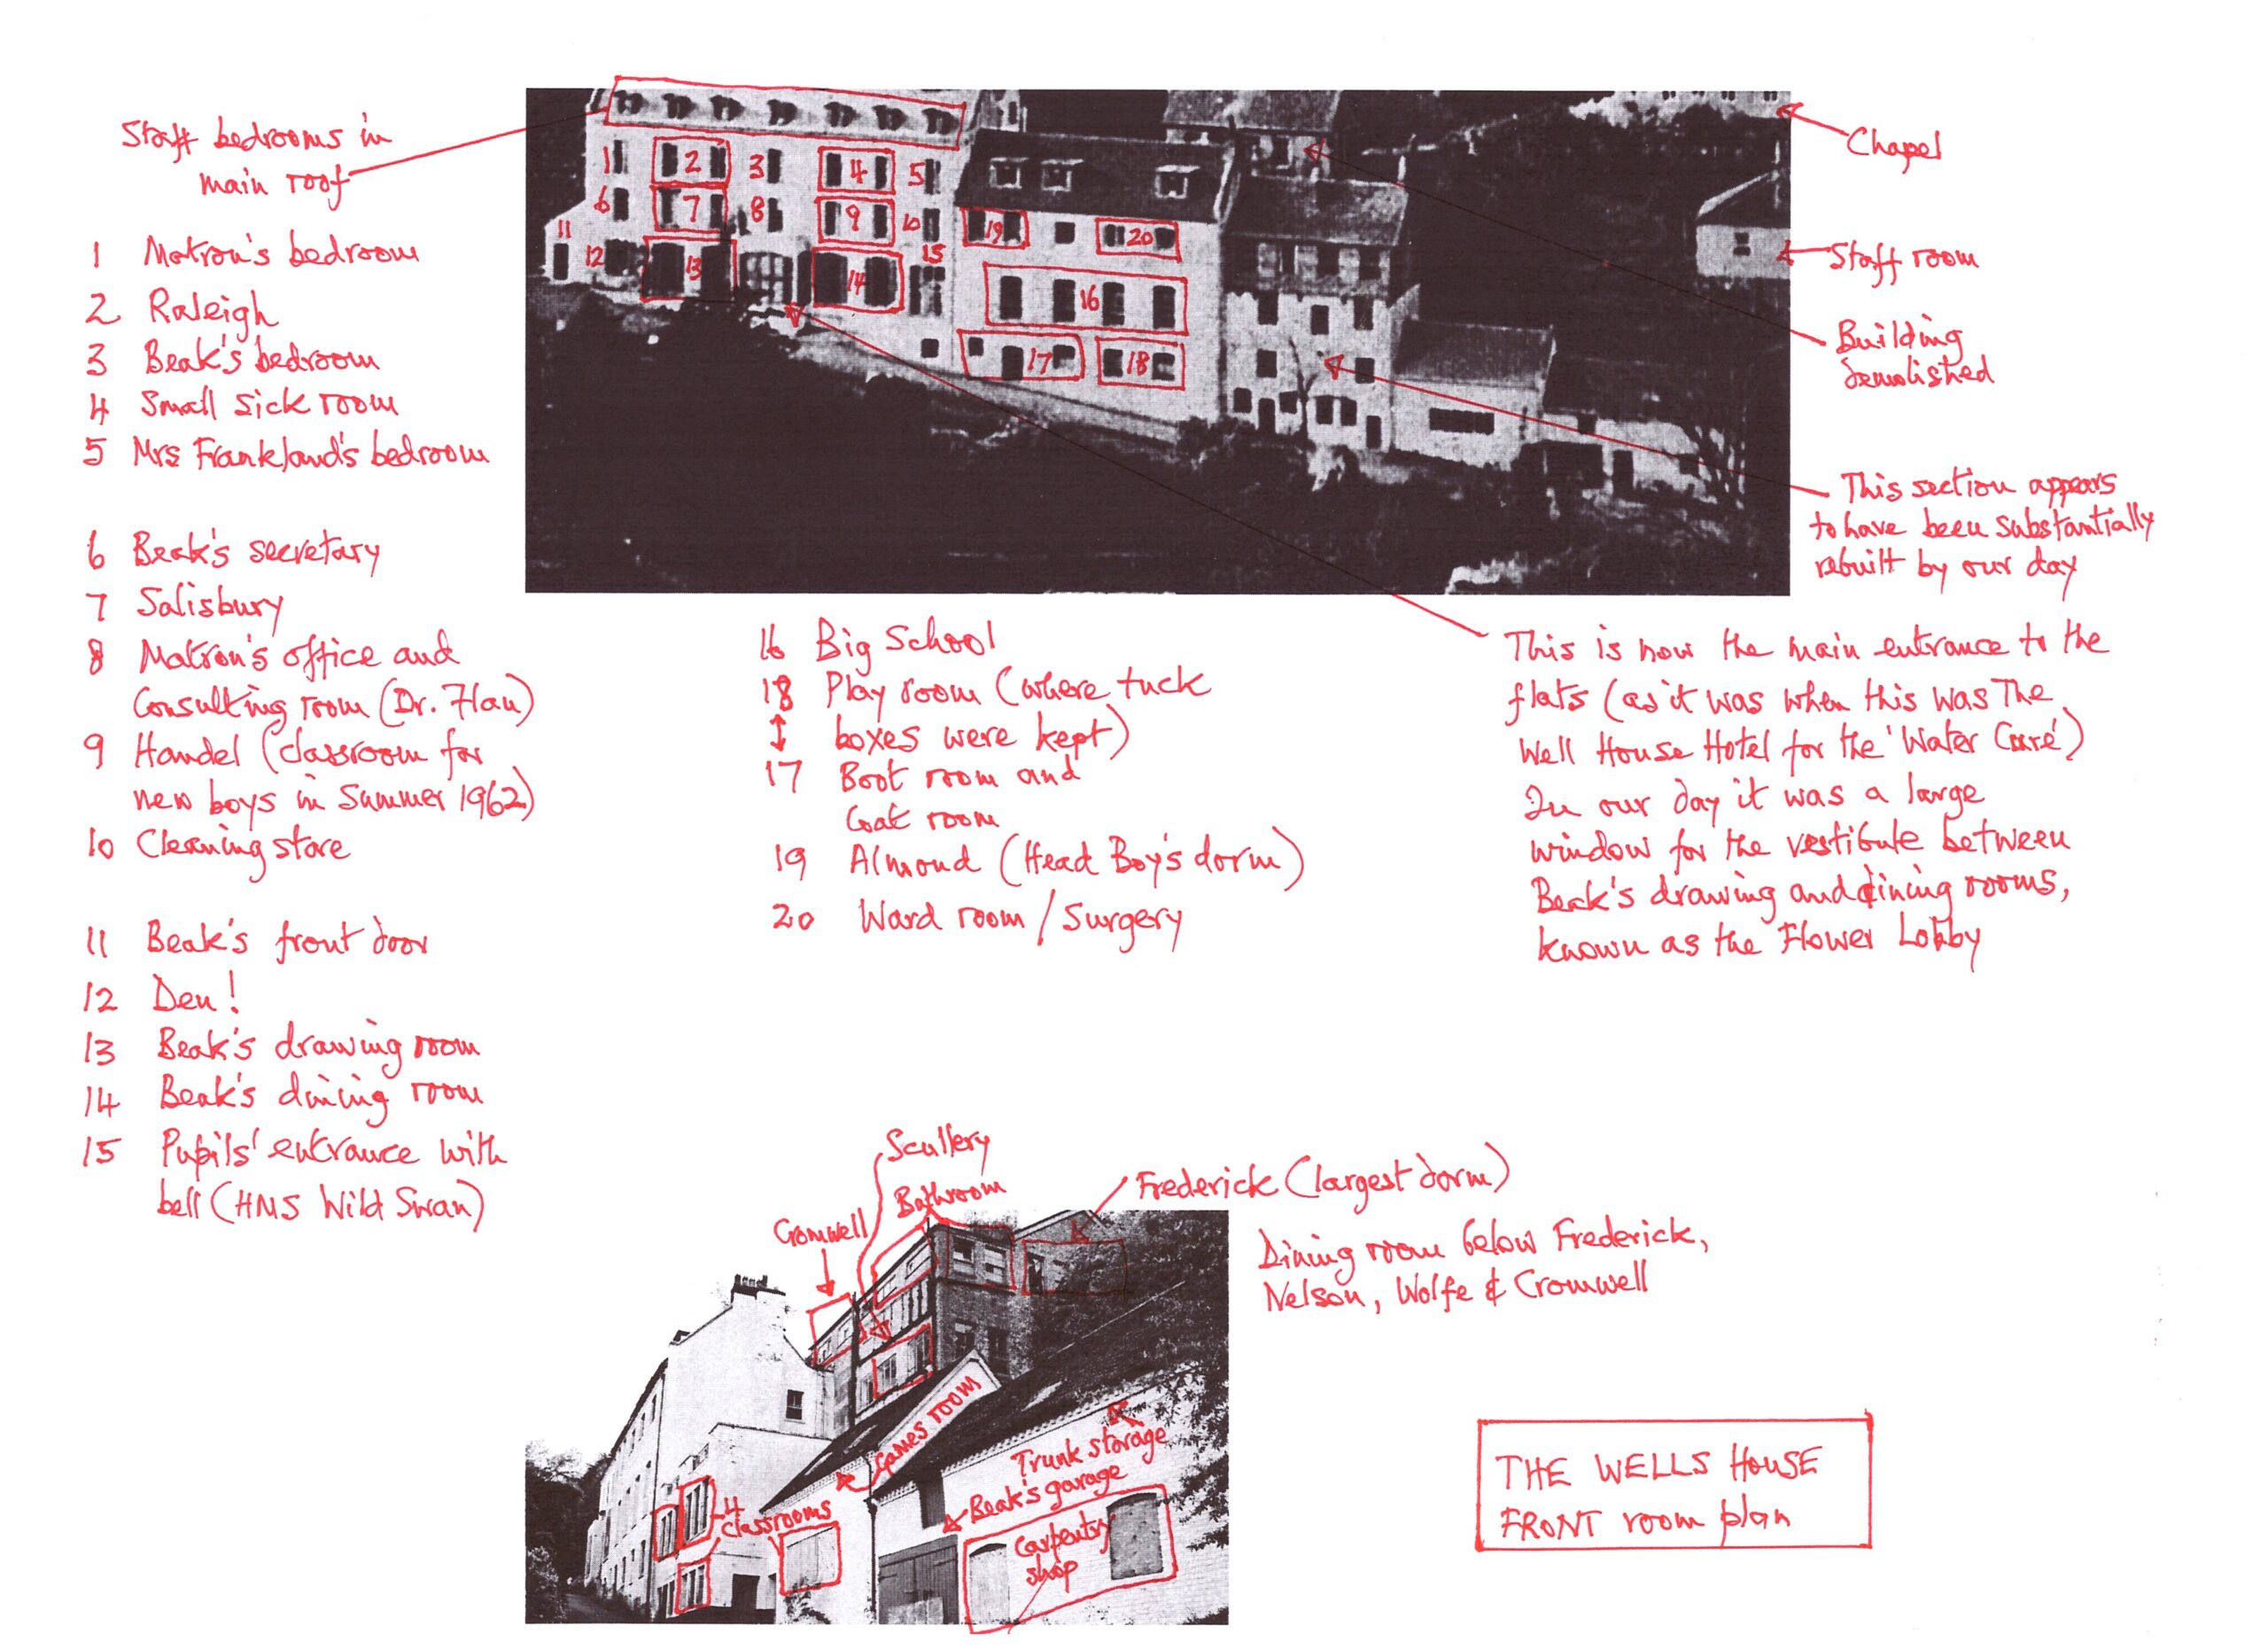 Staff bedrooms in
main roof
1 Matron's bedroom
2 Raleigh
3 Beak's bedroom
4 Small sick room
5 Mrs Frankland's bedroom
6 Beak's secretary
7 Salisbury
8 Matron's office and
Consulting room (Dr. Flau)
9 Handel (classroom for
new boys in Summer 1962)
10 Cleaning store
11 Beak's front door
12 Den!
13 Beak's drawing room
14 Beak's dining room
15 Pupils' entrance with
bell (HMS Wild Swan)
1 2 3 4 5
6 7 8 9 10
11 12 13 14 15
19 20
16
17 18
Chapel
Staff room
Building
demolished
This section appears
to have been substantially
rebuilt by our day
16 Big School
18 Play room (where tuck
boxes were kept)
17 Boot room and
Coat room
19 Almond (Head Boy's dorm)
20 Ward room / Surgery
This is now the main entrance to the
flats (as it was when this was The
Well House Hotel for the 'Water Cure')
In our day it was a large
window for the vestibule between
Beak's drawing and dining rooms,
known as the Flower Lobby
Scullery
Bathroom
Cromwell
Frederick (largest dorm)
Dining room below Frederick,
Nelson, Wolfe & Cromwell
Games room
Trunk storage
Beak's garage
4
classrooms
Carpentry
shop
THE WELLS HOUSE
FRONT room plan